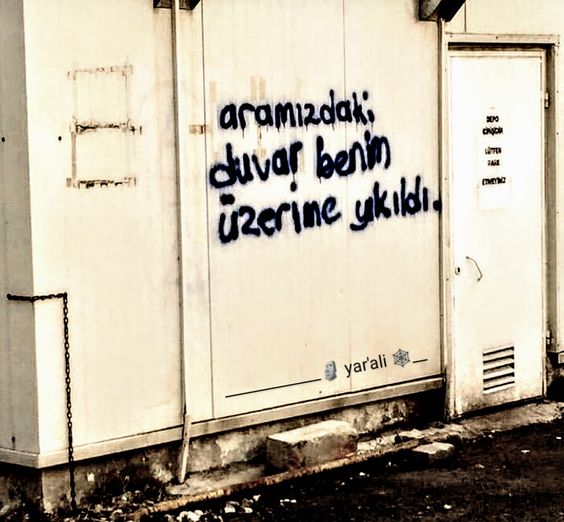 aramızdaki
duvar benim
üzerime yıkıldı.
DEPO
GİRİŞİDİR
LÜTFEN
PARK
ETMEYİNİZ
yar'ali